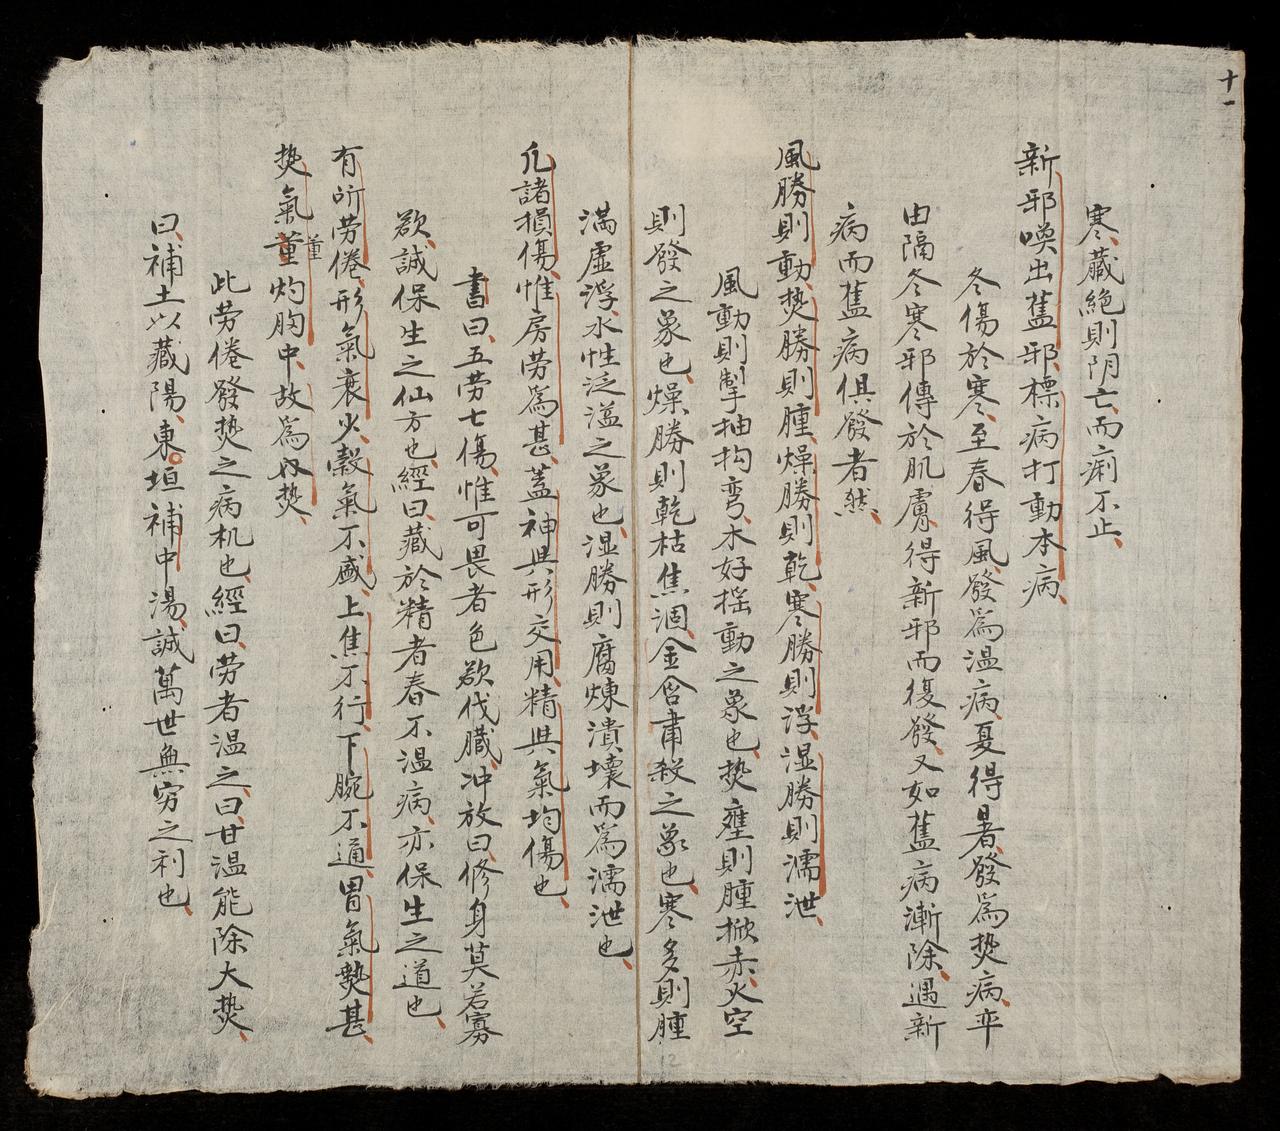 十一
寒、藏絶則阴亡而痢不止、
新邪喚出舊邪、標病打動本病、
冬傷於寒、至春得風發爲温病、夏得暑、發爲𤍠病、卒
由隔冬寒邪傳於肌膚、得新邪而復發、又如舊病漸除、遇新
病而舊病俱發者然、
風勝則動、𤍠勝則腫、燥勝則乾、寒勝則浮、湿勝則濡泄、
風動則掣抽拘弯、木好揺動之象也、𤍠壅則腫掀赤、火空
則發之象也、燥勝則乾枯焦涸、金含肅殺之象也、寒多則腫
滿虚浮、水性泛溢之象也、湿勝則腐煉潰壊而爲濡泄也、
凢諸損傷、惟房劳爲甚、蓋神與形交用、精與氣均傷也、
書曰、五劳七傷、惟可畏者色欲伐臓、冲放曰、修身莫若寡
欲、誠保生之仙方也、經曰、藏於精者春不温病、亦保生之道也、
有所劳倦、形氣衰少、穀氣不盛、上焦不行、下腕不通、胃氣𤍠甚、
𤍠氣董灼胸中、故爲内𤍠、
董
此劳倦發𤍠之病机也、經曰、劳者温之、曰、甘温能除大𤍠、
曰、補土以藏陽、東垣補中湯、誠萬世無穷之利也、
12